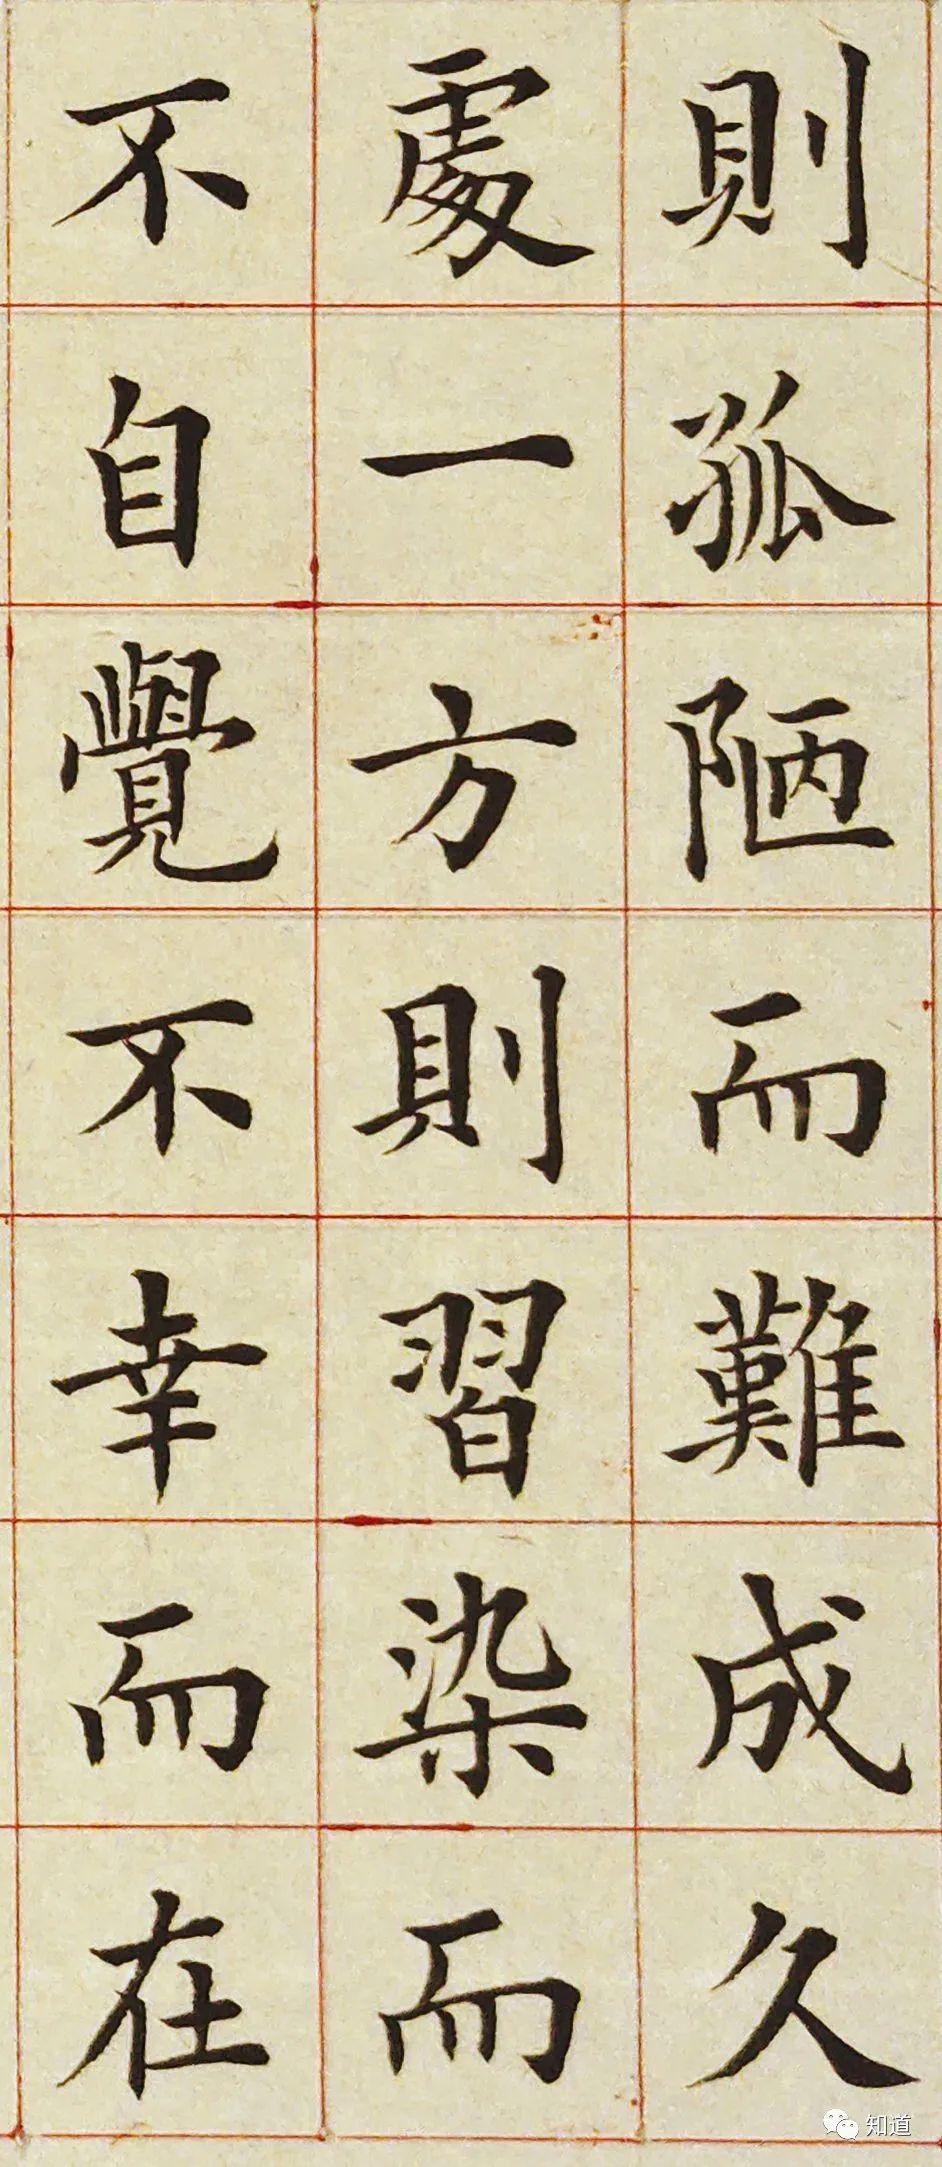 則孤陋而難成久
處一方則習染而
不自覺不幸而在
知道